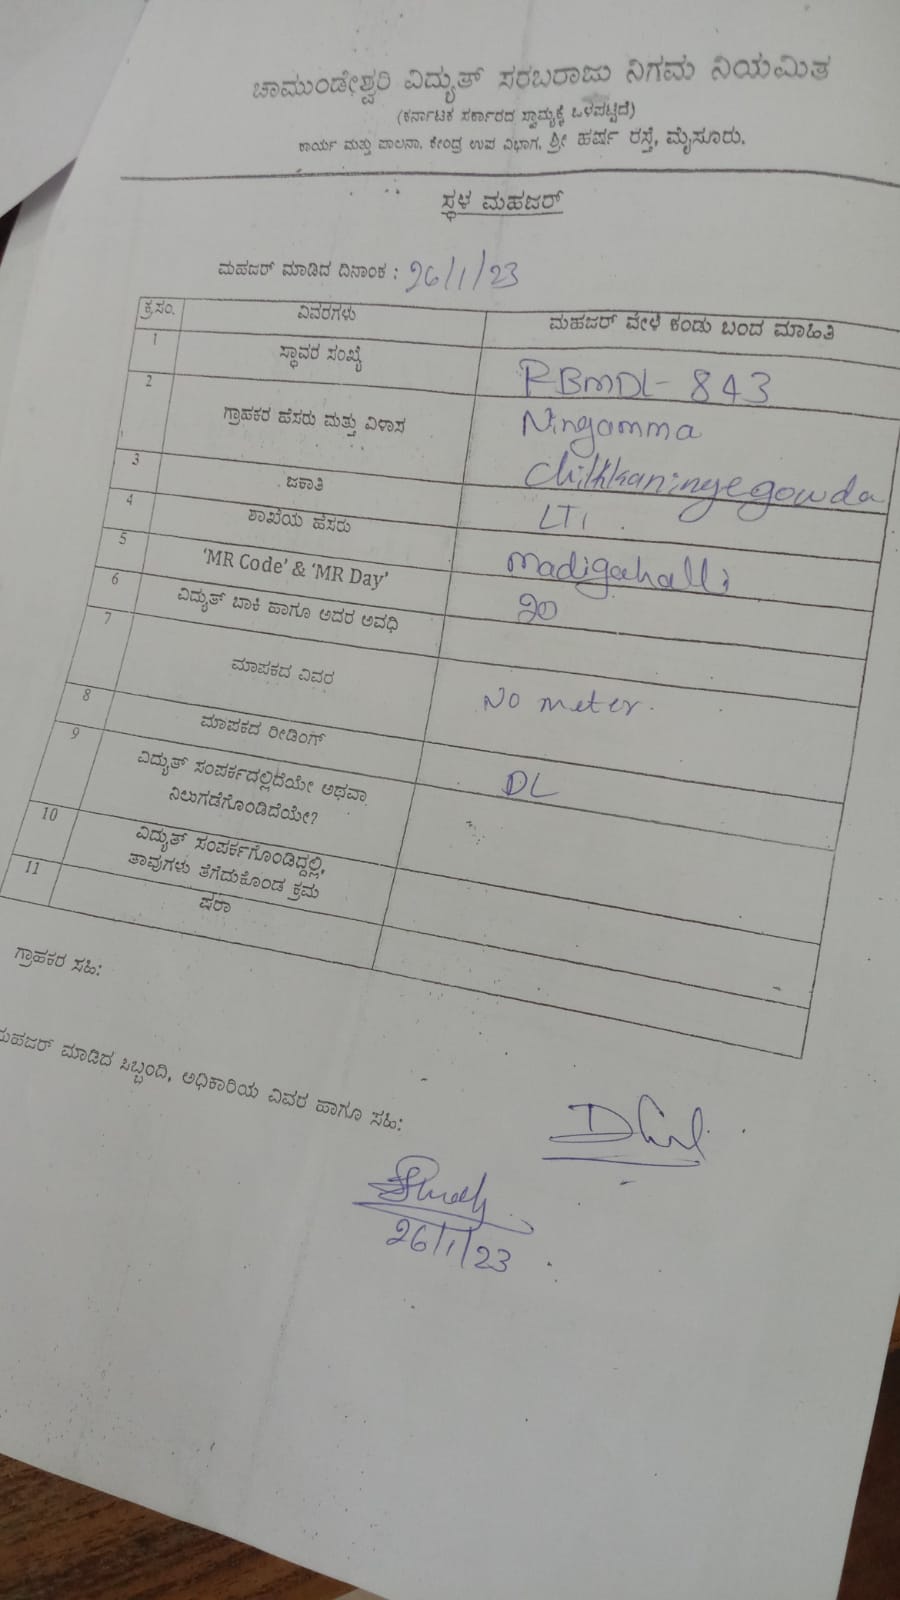 ಚಾಮುಂಡೇಶ್ವರಿ ವಿದ್ಯುತ್ ಸರಬರಾಜು ನಿಗಮ ನಿಯಮಿತ
(ಕರ್ನಾಟಕ ಸರ್ಕಾರದ ಸ್ವಾಮ್ಯಕ್ಕೆ ಒಳಪಟ್ಟಿದೆ)
ಕಾರ್ಯ ಮತ್ತು ಪಾಲನಾ, ಕೇಂದ್ರ ಉಪ ವಿಭಾಗ, ಶ್ರೀ ಹರ್ಷ ರಸ್ತೆ, ಮೈಸೂರು.
ಸ್ಥಳ ಮಹಜರ್
ಮಹಜರ್ ಮಾಡಿದ ದಿನಾಂಕ : 26/1/23
ಕ್ರ.ಸಂ. ವಿವರಗಳು ಮಹಜರ್ ವೇಳೆ ಕಂಡು ಬಂದ ಮಾಹಿತಿ
1 ಸ್ಥಾವರ ಸಂಖ್ಯೆ RBMDL- 843
2 ಗ್ರಾಹಕರ ಹೆಸರು ಮತ್ತು ವಿಳಾಸ Ningamma
Chikkaningegowda
3 ಜಕಾತಿ LT1
4 ಶಾಖೆಯ ಹೆಸರು Madigahalli
5 'MR Code' & 'MR Day' 20
6 ವಿದ್ಯುತ್ ಬಾಕಿ ಹಾಗೂ ಅದರ ಅವಧಿ
7 ಮಾಪಕದ ವಿವರ No meter.
8 ಮಾಪಕದ ರೀಡಿಂಗ್
9 ವಿದ್ಯುತ್ ಸಂಪರ್ಕದಲ್ಲಿದೆಯೇ ಅಥವಾ DL
ನಿಲುಗಡೆಗೊಂಡಿದೆಯೇ?
10 ವಿದ್ಯುತ್ ಸಂಪರ್ಕಗೊಂಡಿದ್ದಲ್ಲಿ,
ತಾವುಗಳು ತೆಗೆದುಕೊಂಡ ಕ್ರಮ
11 ಷರಾ
ಗ್ರಾಹಕರ ಸಹಿ:
ಮಹಜರ್ ಮಾಡಿದ ಸಿಬ್ಬಂದಿ, ಅಧಿಕಾರಿಯ ವಿವರ ಹಾಗೂ ಸಹಿ:
26/1/23